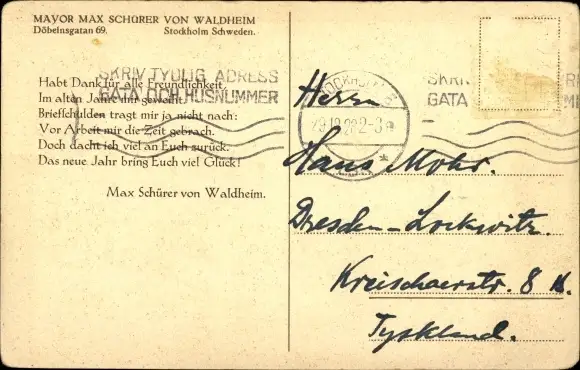 MAYOR MAX SCHÜRER VON WALDHEIM
Döbelnsgatan 69. Stockholm Schweden.
SKRIV TYDLIG ADRESS
GATA OCH HUSNUMMER
Habt Dank für alle Freundlichkeit,
Im alten Jahre mir geweiht.
Briefschulden tragt mir ja nicht nach:
Vor Arbeit mir die Zeit gebrach.
Doch dacht ich viel an Euch zurück.
Das neue Jahr bring Euch viel Glück!
Max Schürer von Waldheim.
STOCKHOLM
SKRIV
GATA
Herrn
Hans Mohr.
Dresden-Lockwitz.
Kreischaerstr. 8
Tyskland.